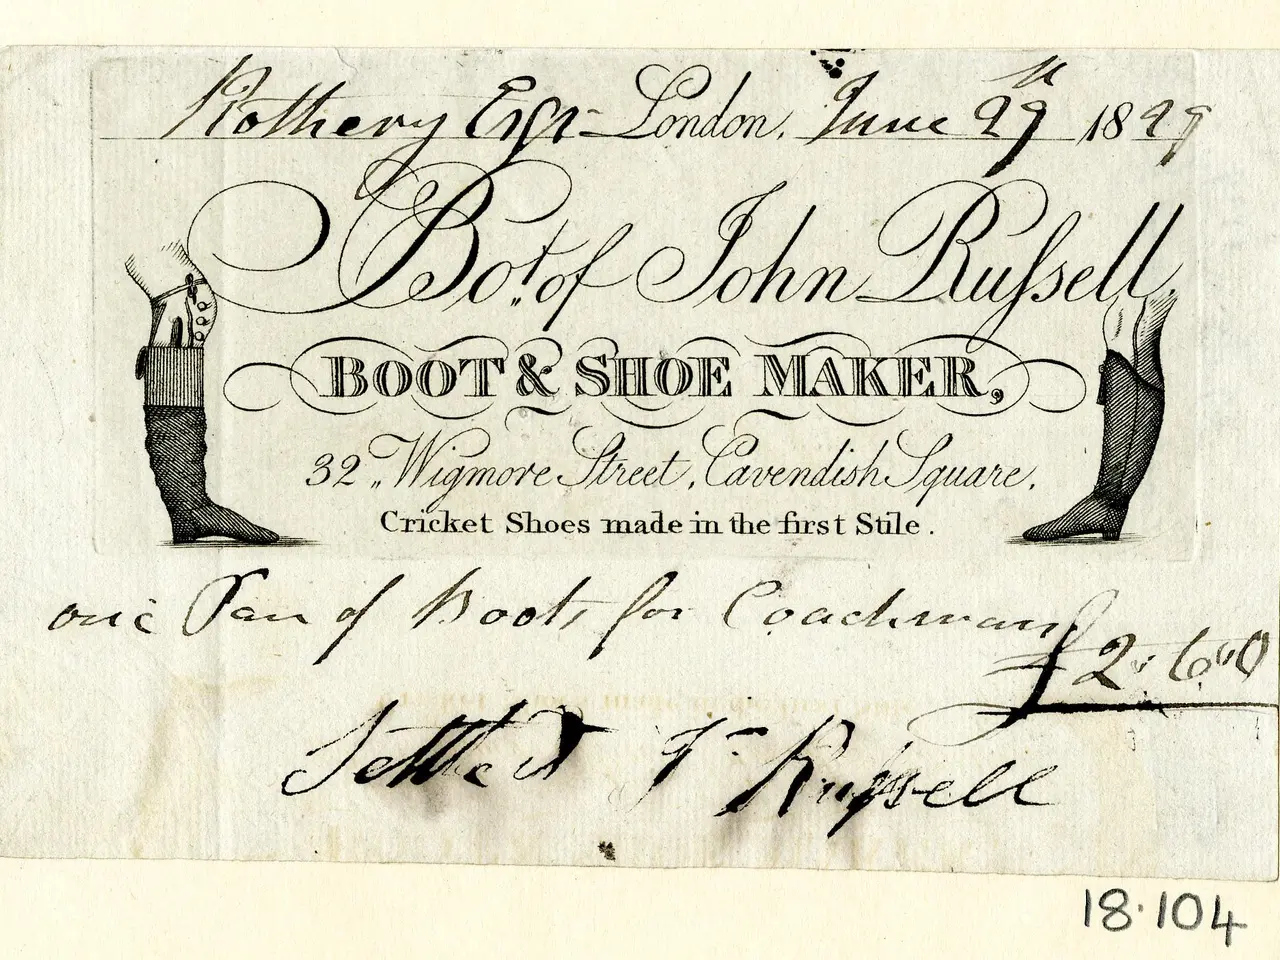 Rothery Esqr London, June 29th 1829
Bot. of John Russell.
BOOT & SHOE MAKER,
32, Wigmore Street, Cavendish Square.
Cricket Shoes made in the first Stile.
one Pair of Boots for Coachman
£2.6.0
Settled Jn Russell
18.104